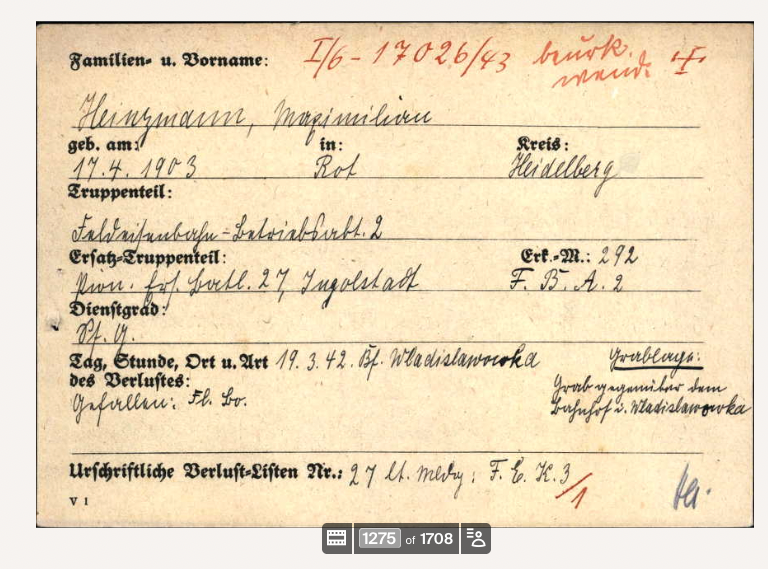 Familien- u. Vorname: I/6 - 17026/43 beurk.
Heinzmann, Maximilian
geb. am: in: Kreis:
17.4. 1903 Rot Heidelberg
Truppenteil:
Feldeisenbahn-Betriebsabt. 2
Ersatz-Truppenteil: Erk.-M.: 292
Pion. Ers. Batl. 27, Ingolstadt F. B. A. 2
Dienstgrad:
Tag, Stunde, Ort u. Art 19. 3. 42. Bf. Wladislawowka Grablage:
des Verlustes: Grab gegenüber dem
Gefallen: Fl. Bo. Bahnhof i. Wladislawowka
Urschriftliche Verlust-Listen Nr.: 27 lt. Meldg: F. E. K. 3 /1
V 1
1275 of 1708